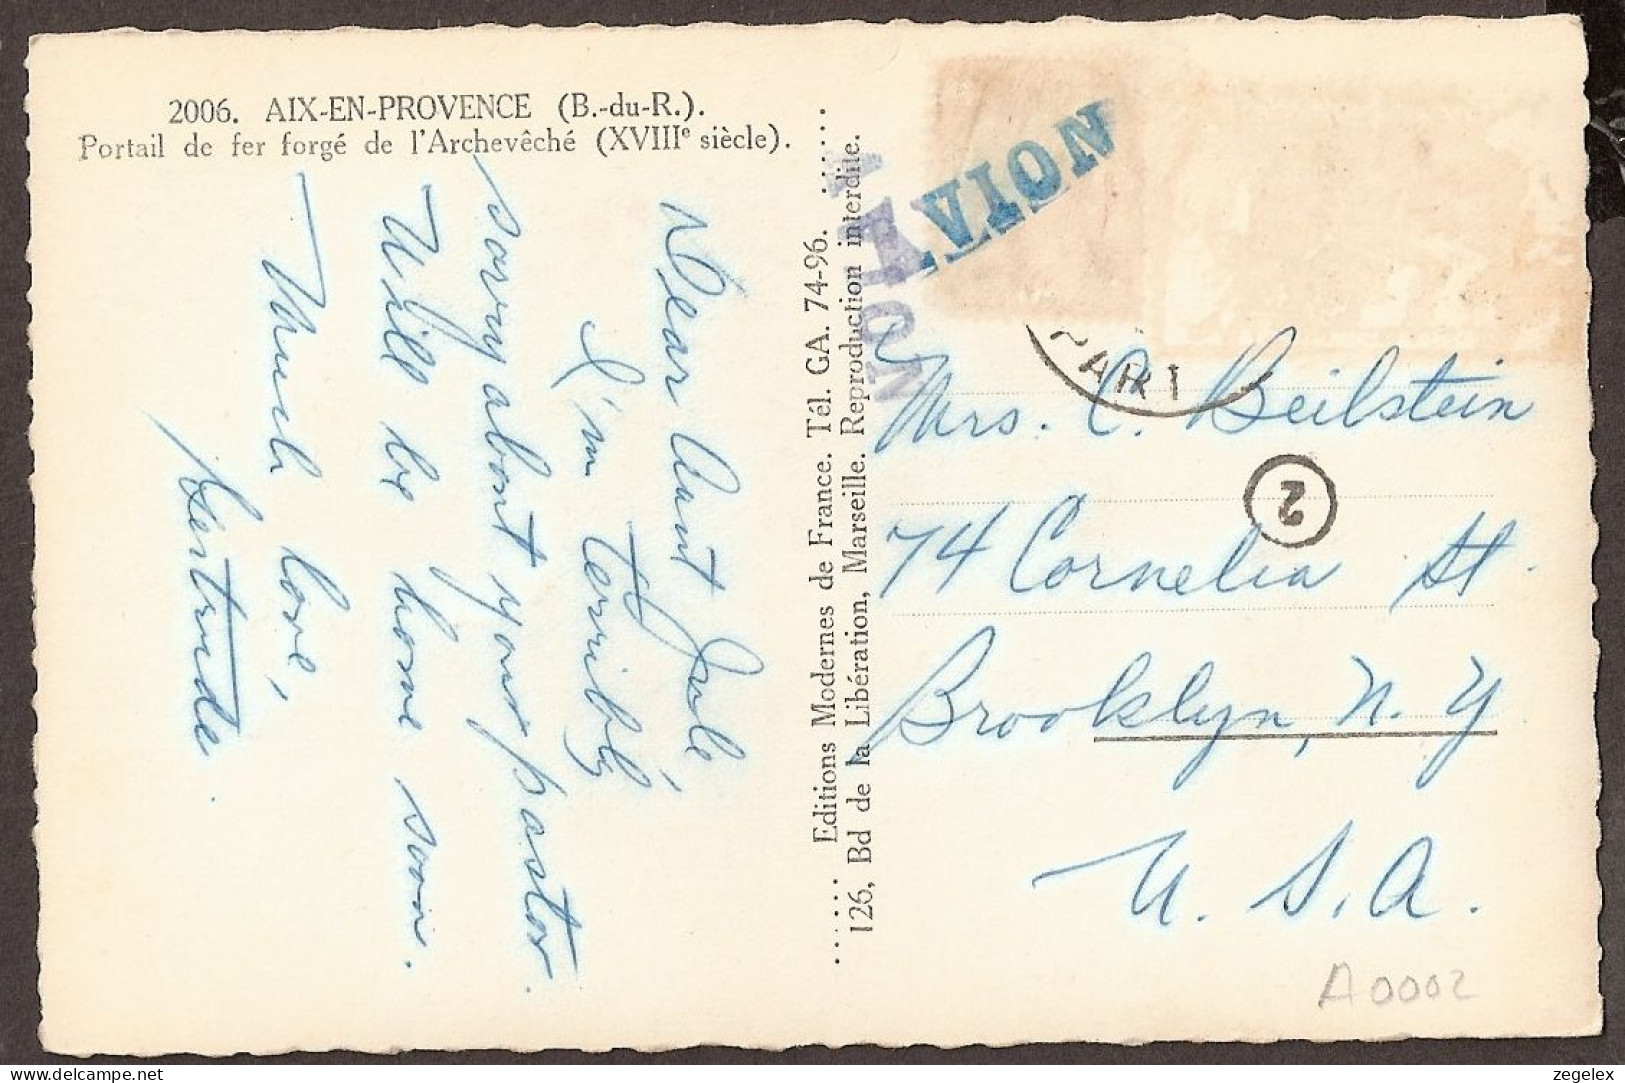 2006. AIX-EN-PROVENCE (B.-du-R.).
Portail de fer forgé de l'Archevêché (XVIIIᵉ siècle).
Dear Aunt Julé,
I'm terribly
sorry about your pastor.
Will be home soon.
Much love,
Gertrude.
...... Editions Modernes de France. Tél. GA. 74-96. ......
126, Bd de la Libération, Marseille. Reproduction interdite.
AVION
AVION
PARI
Mrs. C. Beilstein
2
74 Cornelia St.
Brooklyn, N. Y
U. S. A.
A0002
www.delcampe.net
zegelex